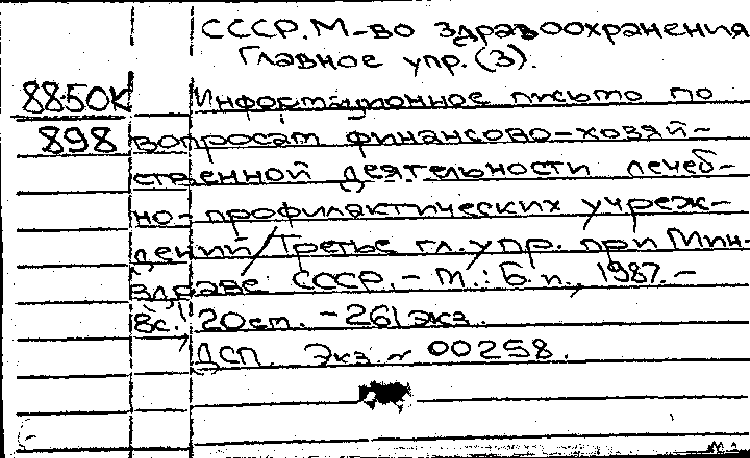 СССР. М-во здравоохранения
Главное упр. (3).
88-50К Информационное письмо по
898 вопросам финансово-хозяй-
ственной деятельности лечеб-
но-профилактических учреж-
дений/Третье гл. упр. при Мин-
здраве СССР. – М.: Б. и., 1987. –
8с.; 20 см. – 261 экз.
ДСП. Экз. № 00258.